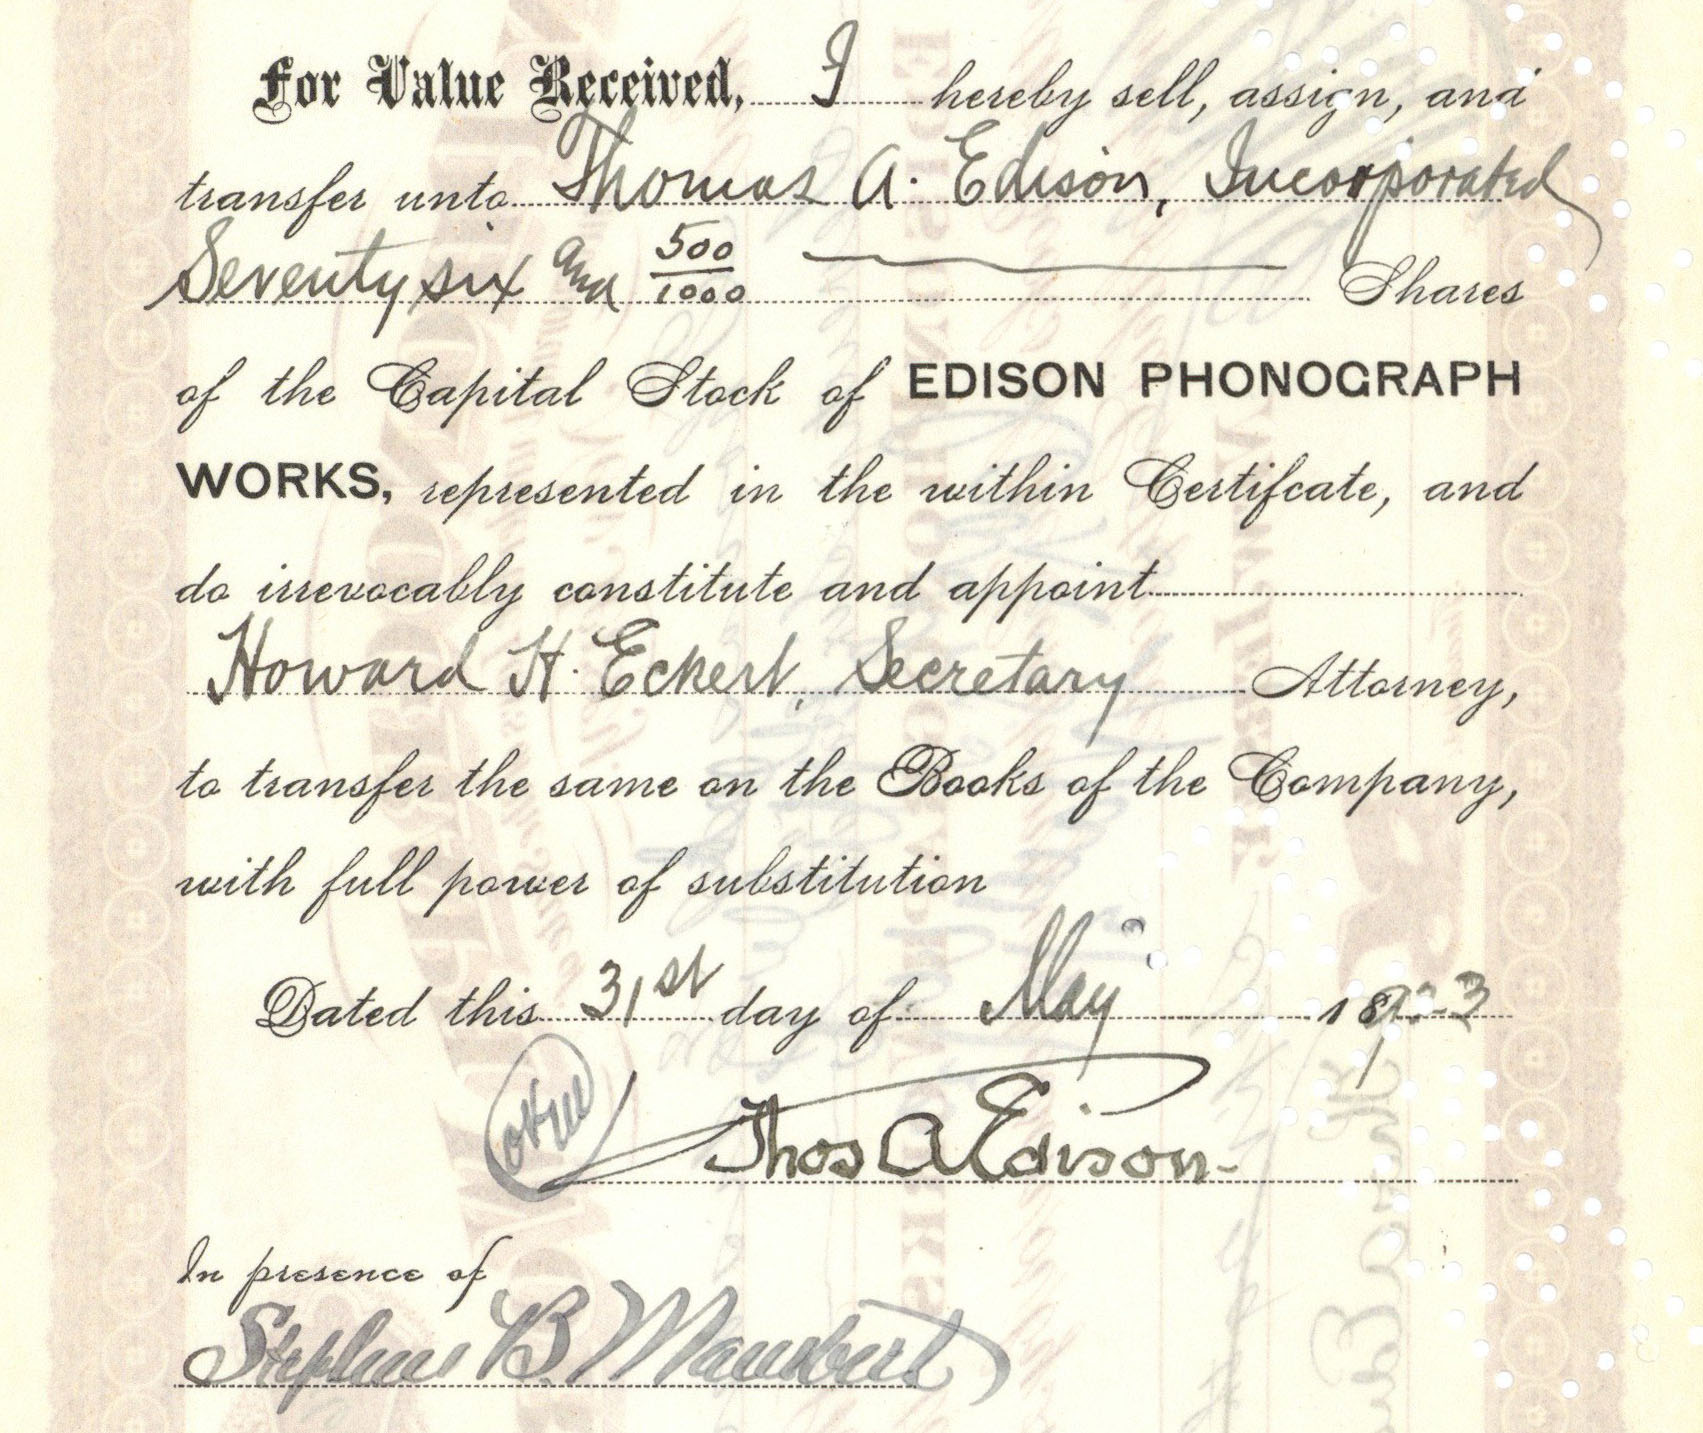 For Value Received, I hereby sell, assign, and
transfer unto Thomas A. Edison, Incorporated
Seventy six and 500/1000 Shares
of the Capital Stock of EDISON PHONOGRAPH
WORKS, represented in the within Certifcate, and
do irrevocably constitute and appoint
Howard H. Eckert, Secretary Attorney,
to transfer the same on the Books of the Company,
with full power of substitution
Dated this 31st day of May
Thos A Edison
In presence of
Stephen B. Mambert